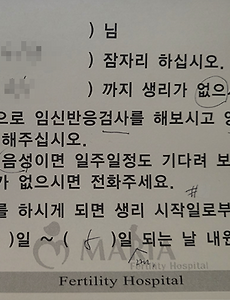 ) 님
) 잠자리 하십시오.
) 까지 생리가 없으
으로 임신반응검사를 해보시고
해주십시오.
음성이면 일주일정도 기다려 보
가 없으시면 전화주세요.
를 하시게 되면 생리 시작일로부
)일 ~ ( 5 )일 되는 날 내원
MARIA
Fertility Hospital
Fertility Hospital